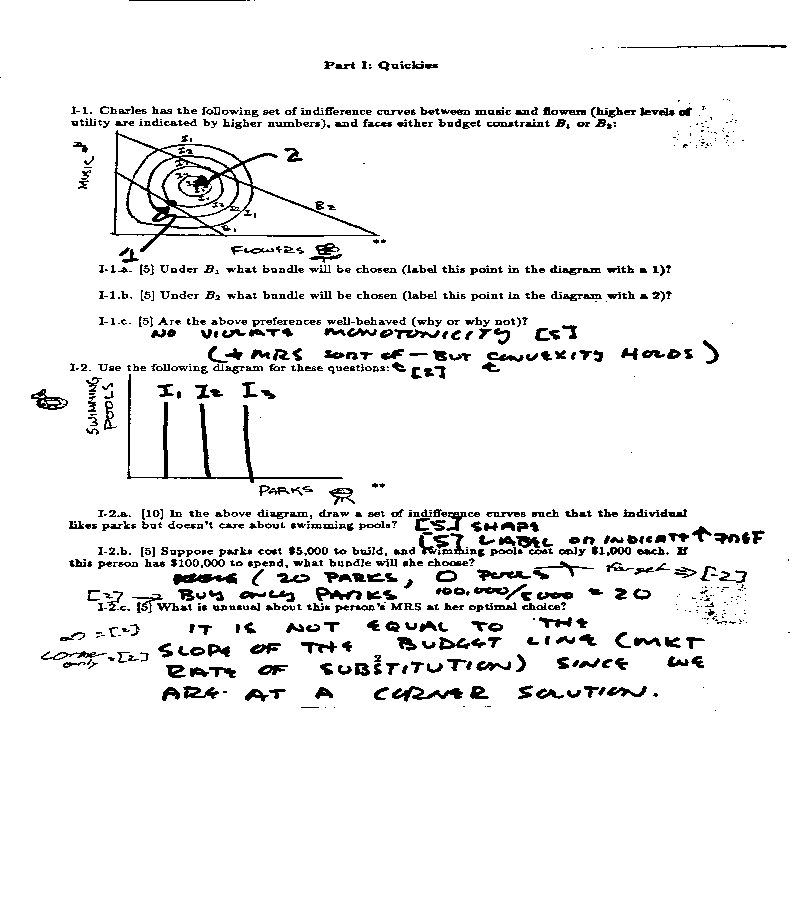 Part I: Quickies
I-1. Charles has the following set of indifference curves between music and flowers (higher levels of
utility are indicated by higher numbers), and faces either budget constraint B₁ or B₂:
MUSIC
I₁
I₂
2
B₂
I₁
B₁
1
FLOWERS
**
I-1.a. [5] Under B₁ what bundle will be chosen (label this point in the diagram with a 1)?
I-1.b. [5] Under B₂ what bundle will be chosen (label this point in the diagram with a 2)?
I-1.c. [5] Are the above preferences well-behaved (why or why not)?
NO VIOLATE MONOTONICITY [5]
(+ MRS SORT OF — BUT CONVEXITY HOLDS)
I-2. Use the following diagram for these questions:
[2]
SWIMMING
POOLS
I₁ I₂ I₃
PARKS
**
I-2.a. [10] In the above diagram, draw a set of indifference curves such that the individual
likes parks but doesn't care about swimming pools?
[5] SHAPE
[5] LABEL OR INDICATE ↑ PREF
I-2.b. [5] Suppose parks cost $5,000 to build, and swimming pools cost only $1,000 each. If
this person has $100,000 to spend, what bundle will she choose?
(20 PARKS, 0 POOLS)
forget ⇒ [-2]
[2] → BUY ONLY PARKS 100,000/5000 = 20
I-2.c. [5] What is unusual about this person's MRS at her optimal choice?
∞ = [2]
IT IS NOT EQUAL TO THE
corner only = [2]
SLOPE OF THE BUDGET LINE (MKT
RATE OF SUBSTITUTION) SINCE WE
ARE AT A CORNER SOLUTION.
2